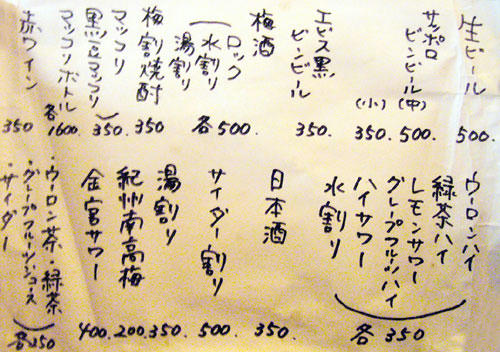 生ビール 500.
サッポロ
ビンビール(中) 500.
(小) 350.
エビス黒
ビンビール 350.
梅酒
(ロック
水割り
湯割り 各500.
梅割焼酎 350
マッコリ
黒豆マッコリ) 350.
マッコリボトル 各1600.
赤ワイン 350
ウーロンハイ
緑茶ハイ
レモンサワー
グレープフルーツハイ
ハイサワー
水割り
各350
日本酒 350.
サイダー割り 500.
湯割り 350.
紀州南高梅 200.
金宮サワー 400.
・ウーロン茶・緑茶
・グレープフルーツジュース
・サイダー
各250